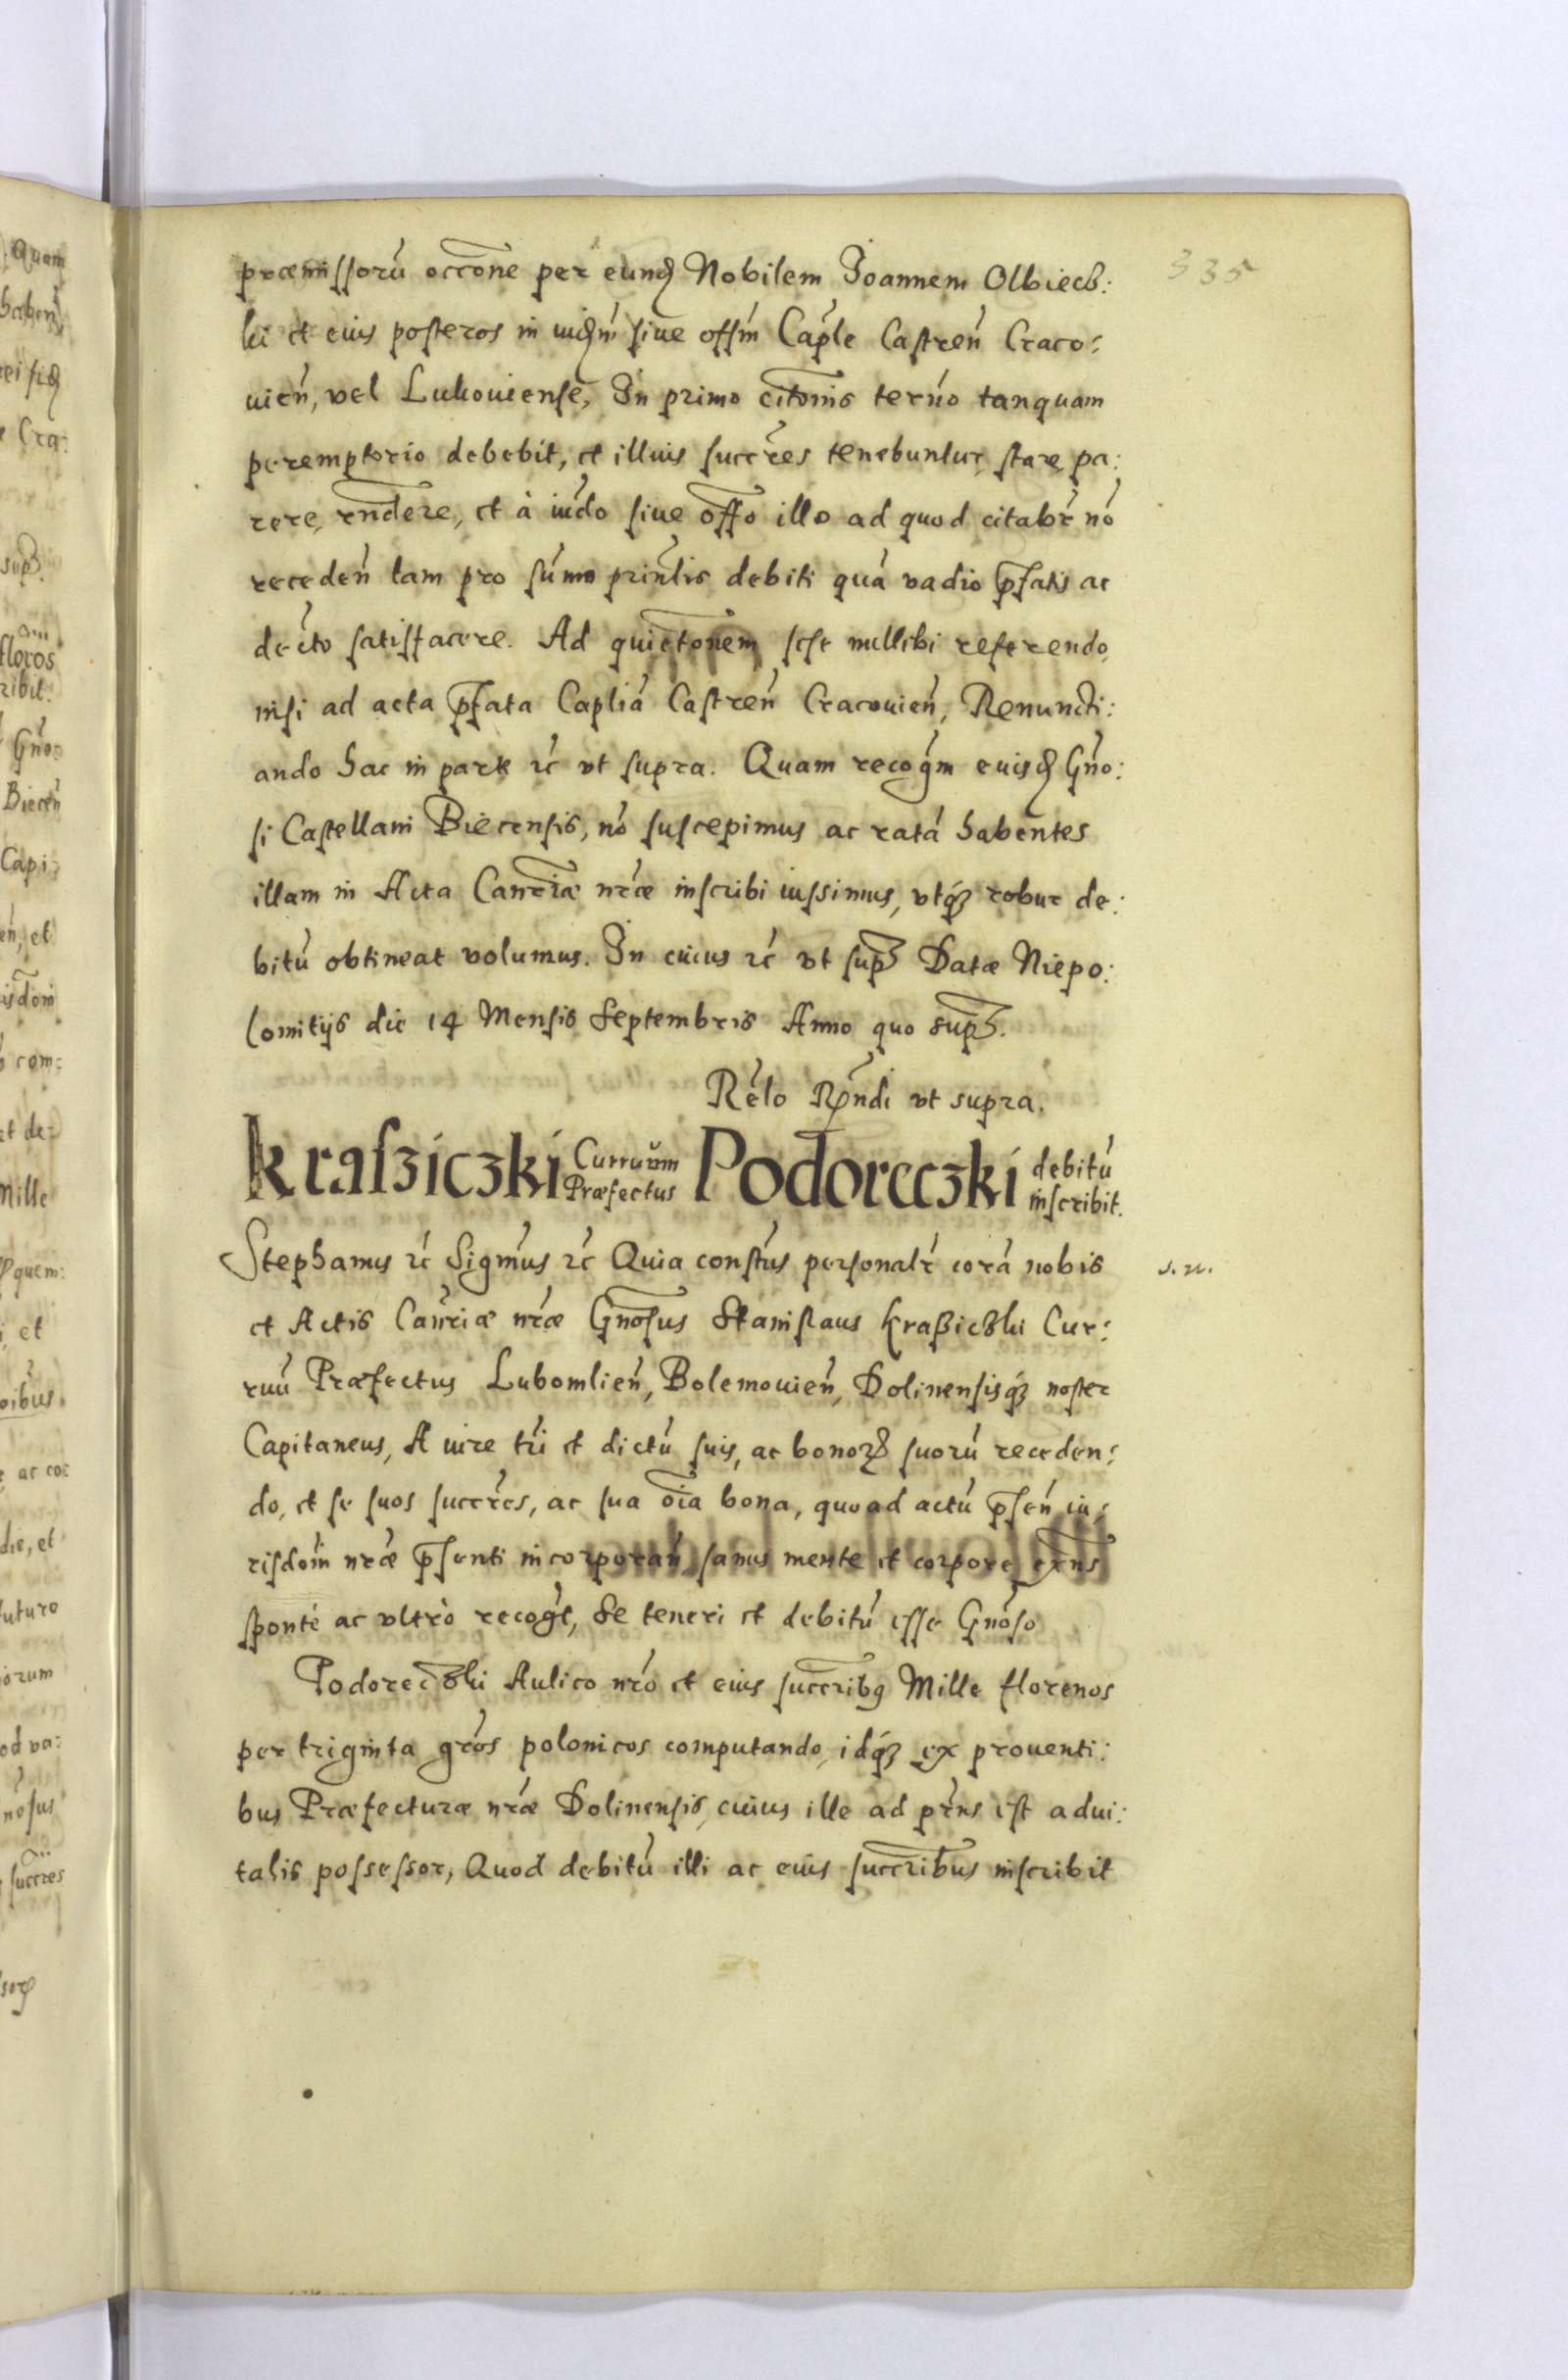 335
præmissorũ occõne per eund Nobilem Joannem Olbiecz:
ki et eius posteros in iudm̃ siue offm̃ Caplẽ Castreñ Craco:
uień, vel Lukouiense, In primo citõnis terńo tanquam
peremptorio debebit, et illius succr̃es tenebuntur, stare, pa:
rere, rñdere, et à iudo siue offõ illo ad quod citabr̃ nõ
recedeń tam pro sum̃a prinlis debiti quá vadio pfatis ac
decto satisfacere. Ad quictõnem sese nullibi referendo,
nisi ad acta pfata Capliá Castreń Cracouień, Renuncti:
ando hac in parte rć vt supra. Quam recogm̃ euisd Gño:
si Castellani Biecensis, nõ suscepimus ac ratá habentes
illam in Acta Canr̃iæ nr̃æ inscribi iussimus, vtq́ robur de:
bitũ obtineat volumus. In cuius rć vt sup Datæ Niepo:
lomitijs die 14 Mensis Septembris Anno quo sup.
Rel̃o Rñdi vt supra.
Kraſziczki Curruũm Præfectus Podoreczki debitũ inscribit.
Stephanus rć Sigm̃us rć Quia constús personalr̃ corá nobis
s.n.
et Actis Canr̃iæ nr̃æ Gnõsus Stanislaus Kraßiczki Cur:
ruũ Præfectus Lubomlień, Bolemouień, Dolinensisq́ noster
Capitaneus, A iure trĩ et dictũ suis, ac bonor suorũ receden:
do, et se suos succr̃es, ac sua oĩa bona, quoad actũ psen iu:
risdom̃ nr̃æ psenti incorporań sanus mente et corpore exñs
sponte ac vltrò recogt̃, Se teneri et debitũ esse Gnõso
Podoreczki Aulico nr̃o et eius succribg Mille florenos
per triginta gr̃os polonicos computando, idq́ ex prouenti:
bus Præfecturæ nr̃æ Dolinensis, cuius ille ad prñs est adui:
talis possessor, Quod debitũ illi ac eius succribus inscribit